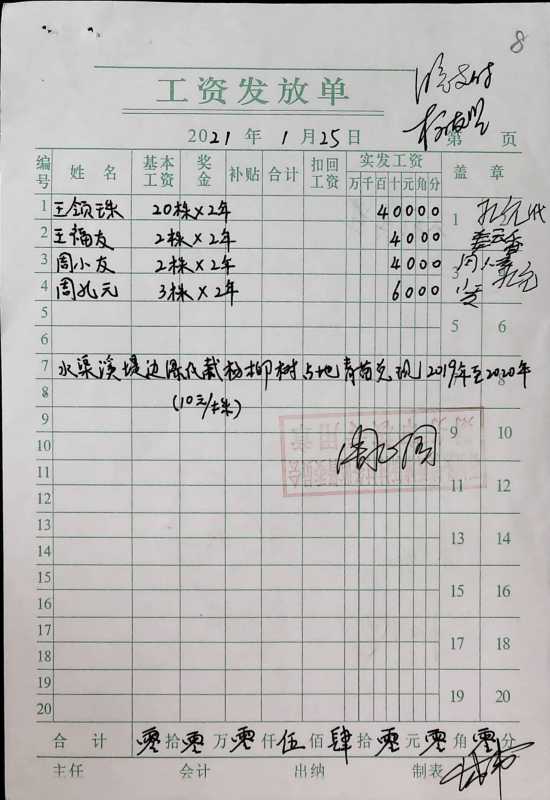 8
工资发放单
2021年1月25日 第 页
编号 姓名 基本工资 奖金 补贴 合计 扣回工资 实发工资 万千百十元角分 盖章
1 王领珠 20株×2年 40000 1
2 王福友 2株×2年 4000
3 周小友 2株×2年 4000 3
4 周兆元 3株×2年 6000
5 5 6
6
7 水渠溪堤边 栽杨柳树占地青苗兑现2019年至2020年
8 (10元/株) 8
9 9 10
10
11 11 12
12
13 13 14
14
15 15 16
16
17 17 18
18
19 19 20
20
合计 零拾零万零仟伍佰肆拾零元零角零分
主任 会计 出纳 制表